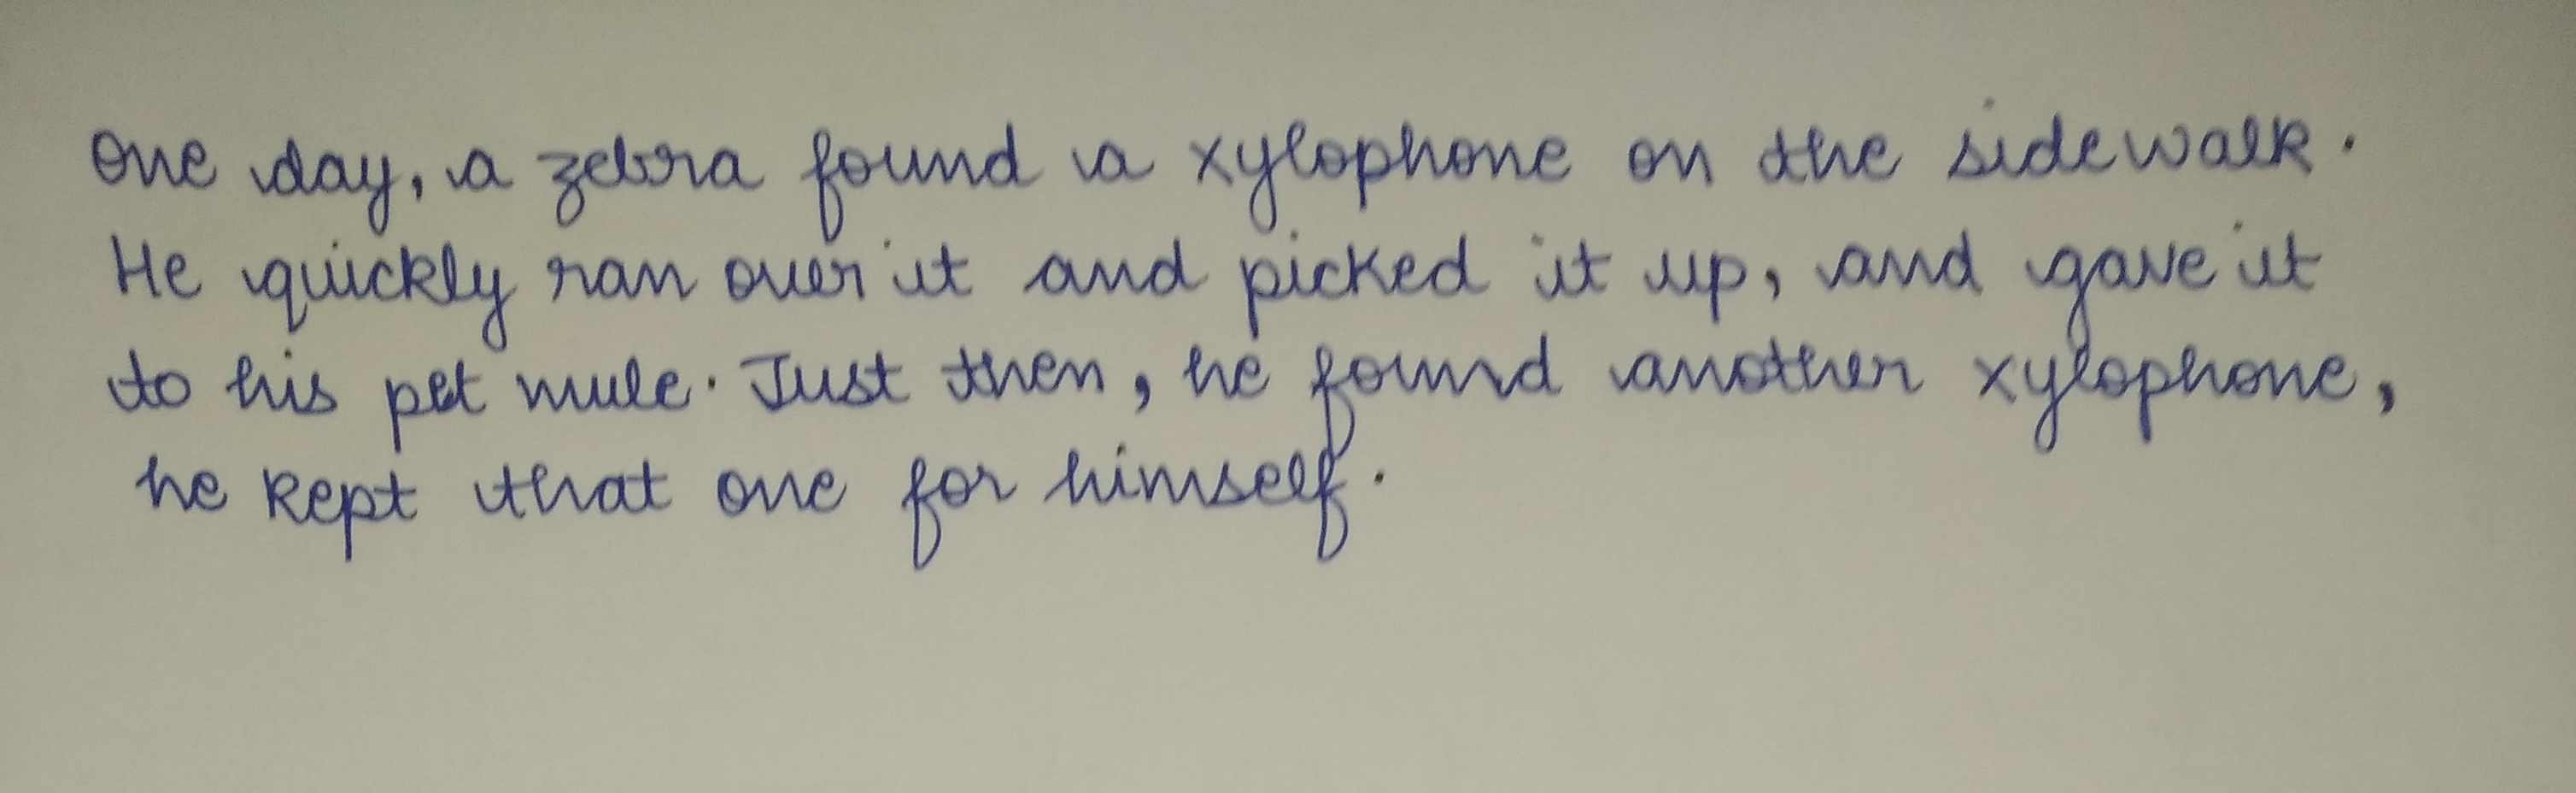 One day, a zebra found a xylophone on the sidewalk.
He quickly ran over it and picked it up, and gave it
to his pet mule. Just then, he found another xylophone,
he kept that one for himself.